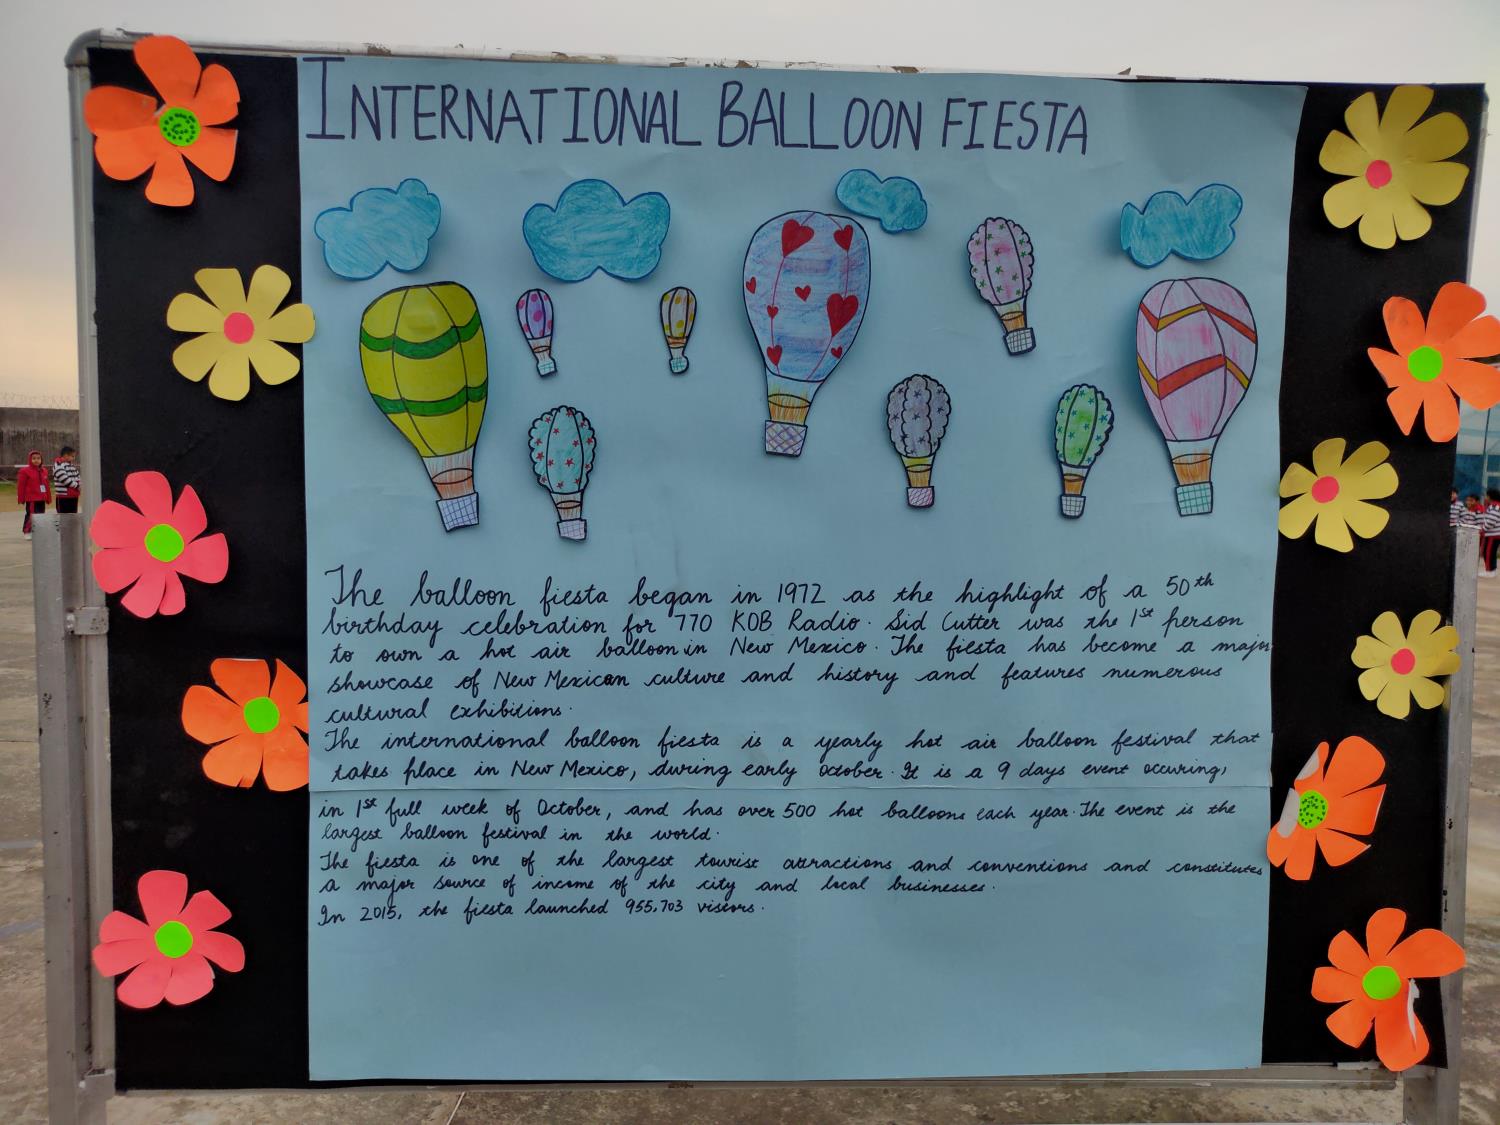 INTERNATIONAL BALLOON FIESTA
The balloon fiesta began in 1972 as the highlight of a 50th
birthday celebration for 770 KOB Radio. Sid Cutter was the 1st person
to own a hot air balloon in New Mexico. The fiesta has become a major
showcase of New Mexican culture and history and features numerous
cultural exhibitions.
The international balloon fiesta is a yearly hot air balloon festival that
takes place in New Mexico, during early october. It is a 9 days event occuring,
in 1st full week of October, and has over 500 hot balloons each year. The event is the
largest balloon festival in the world.
The fiesta is one of the largest tourist attractions and conventions and constitutes
a major source of income of the city and local businesses.
In 2015, the fiesta launched 955,703 visitors.